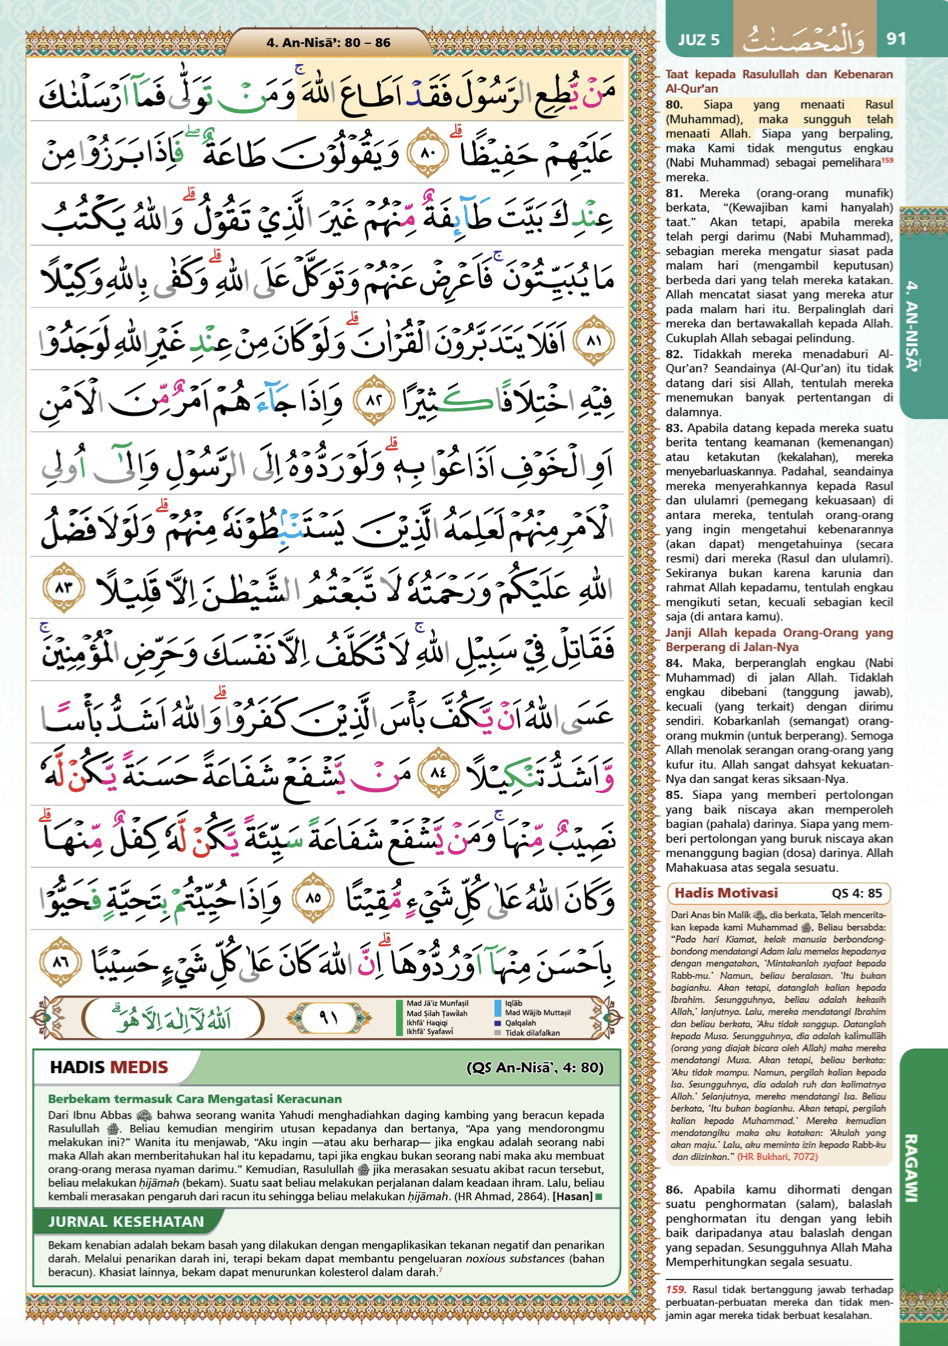 4. An-Nisā’: 80 – 86
مَنْ يُّطِعِ الرَّسُوْلَ فَقَدْ اَطَاعَ اللّٰهَ ۚ وَمَنْ تَوَلّٰى فَمَآ اَرْسَلْنٰكَ
عَلَيْهِمْ حَفِيْظًا ۗ ٨٠ وَيَقُوْلُوْنَ طَاعَةٌ ۖ فَاِذَا بَرَزُوْا مِنْ
عِنْدِكَ بَيَّتَ طَاۤىِٕفَةٌ مِّنْهُمْ غَيْرَ الَّذِيْ تَقُوْلُ ۗ وَاللّٰهُ يَكْتُبُ
مَا يُبَيِّتُوْنَ ۚ فَاَعْرِضْ عَنْهُمْ وَتَوَكَّلْ عَلَى اللّٰهِ ۗ وَكَفٰى بِاللّٰهِ وَكِيْلًا
٨١ اَفَلَا يَتَدَبَّرُوْنَ الْقُرْاٰنَ ۗ وَلَوْ كَانَ مِنْ عِنْدِ غَيْرِ اللّٰهِ لَوَجَدُوْا
فِيْهِ اخْتِلَافًا كَثِيْرًا ٨٢ وَاِذَا جَاۤءَهُمْ اَمْرٌ مِّنَ الْاَمْنِ
اَوِ الْخَوْفِ اَذَاعُوْا بِهٖ ۗ وَلَوْ رَدُّوْهُ اِلَى الرَّسُوْلِ وَاِلٰٓى اُولِى
الْاَمْرِ مِنْهُمْ لَعَلِمَهُ الَّذِيْنَ يَسْتَنْۢبِطُوْنَهٗ مِنْهُمْ ۗ وَلَوْلَا فَضْلُ
اللّٰهِ عَلَيْكُمْ وَرَحْمَتُهٗ لَاتَّبَعْتُمُ الشَّيْطٰنَ اِلَّا قَلِيْلًا ٨٣
فَقَاتِلْ فِيْ سَبِيْلِ اللّٰهِ ۚ لَا تُكَلَّفُ اِلَّا نَفْسَكَ وَحَرِّضِ الْمُؤْمِنِيْنَ ۚ
عَسَى اللّٰهُ اَنْ يَّكُفَّ بَأْسَ الَّذِيْنَ كَفَرُوْا ۗ وَاللّٰهُ اَشَدُّ بَأْسًا
وَّاَشَدُّ تَنْكِيْلًا ٨٤ مَنْ يَّشْفَعْ شَفَاعَةً حَسَنَةً يَّكُنْ لَّهٗ
نَصِيْبٌ مِّنْهَا ۚ وَمَنْ يَّشْفَعْ شَفَاعَةً سَيِّئَةً يَّكُنْ لَّهٗ كِفْلٌ مِّنْهَا ۗ
وَكَانَ اللّٰهُ عَلٰى كُلِّ شَيْءٍ مُّقِيْتًا ٨٥ وَاِذَا حُيِّيْتُمْ بِتَحِيَّةٍ فَحَيُّوْا
بِاَحْسَنَ مِنْهَآ اَوْ رُدُّوْهَا ۗ اِنَّ اللّٰهَ كَانَ عَلٰى كُلِّ شَيْءٍ حَسِيْبًا ٨٦
اَللّٰهُ لَآ اِلٰهَ اِلَّا هُوَ ۗ
٩١
Mad Jā’iz Munfaṣil
Mad Ṣilah Ṭawīlah
Ikhfā’ Haqiqi
Ikhfā’ Syafawī
Iqlāb
Mad Wājib Muttaṣil
Qalqalah
Tidak dilafalkan
HADIS MEDIS
(QS An-Nisā’, 4: 80)
Berbekam termasuk Cara Mengatasi Keracunan
Dari Ibnu Abbas ﷺ bahwa seorang wanita Yahudi menghadiahkan daging kambing yang beracun kepada
Rasulullah ﷺ. Beliau kemudian mengirim utusan kepadanya dan bertanya, “Apa yang mendorongmu
melakukan ini?” Wanita itu menjawab, “Aku ingin —atau aku berharap— jika engkau adalah seorang nabi
maka Allah akan memberitahukan hal itu kepadamu, tapi jika engkau bukan seorang nabi maka aku membuat
orang-orang merasa nyaman darimu.” Kemudian, Rasulullah ﷺ jika merasakan sesuatu akibat racun tersebut,
beliau melakukan ḥijāmah (bekam). Suatu saat beliau melakukan perjalanan dalam keadaan ihram. Lalu, beliau
kembali merasakan pengaruh dari racun itu sehingga beliau melakukan ḥijāmah. (HR Ahmad, 2864). [Hasan]
JURNAL KESEHATAN
Bekam kenabian adalah bekam basah yang dilakukan dengan mengaplikasikan tekanan negatif dan penarikan
darah. Melalui penarikan darah ini, terapi bekam dapat membantu pengeluaran noxious substances (bahan
beracun). Khasiat lainnya, bekam dapat menurunkan kolesterol dalam darah.⁷
JUZ 5
وَالْمُحْصَنٰتُ
91
Taat kepada Rasulullah dan Kebenaran
Al-Qur'an
80. Siapa yang menaati Rasul
(Muhammad), maka sungguh telah
menaati Allah. Siapa yang berpaling,
maka Kami tidak mengutus engkau
(Nabi Muhammad) sebagai pemelihara¹⁵⁹
mereka.
81. Mereka (orang-orang munafik)
berkata, “(Kewajiban kami hanyalah)
taat.” Akan tetapi, apabila mereka
telah pergi darimu (Nabi Muhammad),
sebagian mereka mengatur siasat pada
malam hari (mengambil keputusan)
berbeda dari yang telah mereka katakan.
Allah mencatat siasat yang mereka atur
pada malam hari itu. Berpalinglah dari
mereka dan bertawakallah kepada Allah.
Cukuplah Allah sebagai pelindung.
82. Tidakkah mereka menadaburi Al-
Qur'an? Seandainya (Al-Qur'an) itu tidak
datang dari sisi Allah, tentulah mereka
menemukan banyak pertentangan di
dalamnya.
83. Apabila datang kepada mereka suatu
berita tentang keamanan (kemenangan)
atau ketakutan (kekalahan), mereka
menyebarluaskannya. Padahal, seandainya
mereka menyerahkannya kepada Rasul
dan ululamri (pemegang kekuasaan) di
antara mereka, tentulah orang-orang
yang ingin mengetahui kebenarannya
(akan dapat) mengetahuinya (secara
resmi) dari mereka (Rasul dan ululamri).
Sekiranya bukan karena karunia dan
rahmat Allah kepadamu, tentulah engkau
mengikuti setan, kecuali sebagian kecil
saja (di antara kamu).
Janji Allah kepada Orang-Orang yang
Berperang di Jalan-Nya
84. Maka, berperanglah engkau (Nabi
Muhammad) di jalan Allah. Tidaklah
engkau dibebani (tanggung jawab),
kecuali (yang terkait) dengan dirimu
sendiri. Kobarkanlah (semangat) orang-
orang mukmin (untuk berperang). Semoga
Allah menolak serangan orang-orang yang
kufur itu. Allah sangat dahsyat kekuatan-
Nya dan sangat keras siksaan-Nya.
85. Siapa yang memberi pertolongan
yang baik niscaya akan memperoleh
bagian (pahala) darinya. Siapa yang mem-
beri pertolongan yang buruk niscaya akan
menanggung bagian (dosa) darinya. Allah
Mahakuasa atas segala sesuatu.
Hadis Motivasi QS 4: 85
Dari Anas bin Malik, dia berkata, Telah mencerita-
kan kepada kami Muhammad ﷺ, Beliau bersabda:
“Pada hari Kiamat, kelak manusia berbondong-
bondong mendatangi Adam lalu memelas kepadanya
dengan mengatakan, ‘Mintakanlah syafaat kepada
Rabb-mu.’ Namun, beliau beralasan. ‘Itu bukan
bagianku. Akan tetapi, datanglah kalian kepada
Ibrahim. Sesungguhnya, beliau adalah kekasih
Allah,’ lanjutnya. Lalu, mereka mendatangi Ibrahim
dan beliau berkata, ‘Aku tidak sanggup. Datanglah
kepada Musa. Sesungguhnya, dia adalah kalimullāh
(orang yang diajak bicara oleh Allah) maka mereka
mendatangi Musa. Akan tetapi, beliau berkata:
‘Aku tidak mampu. Namun, pergilah kalian kepada
Isa. Sesungguhnya, dia adalah ruh dan kalimatnya
Allah.’ Selanjutnya, mereka mendatangi Isa. Beliau
berkata, ‘Itu bukan bagianku. Akan tetapi, pergilah
kalian kepada Muhammad.’ Mereka kemudian
mendatangiku maka aku katakan: ‘Akulah yang
akan maju.’ Lalu, aku meminta izin kepada Rabb-ku
dan diizinkan.” (HR Bukhari, 7072)
86. Apabila kamu dihormati dengan
suatu penghormatan (salam), balaslah
penghormatan itu dengan yang lebih
baik daripadanya atau balaslah dengan
yang sepadan. Sesungguhnya Allah Maha
Memperhitungkan segala sesuatu.
159. Rasul tidak bertanggung jawab terhadap
perbuatan-perbuatan mereka dan tidak men-
jamin agar mereka tidak berbuat kesalahan.
4. AN-NISĀ’
RAGAWI